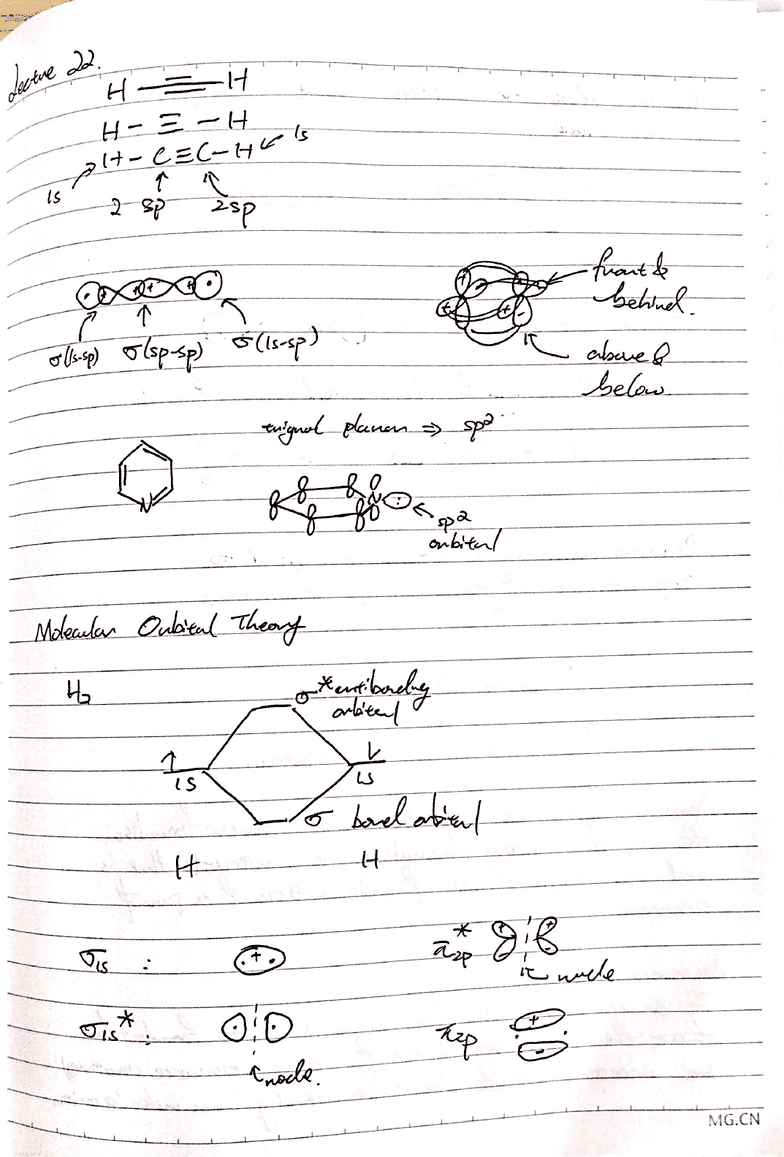 Lecture 22.
H — ≡ — H
H - ≡ - H
1s H - C ≡ C - H 1s
2 sp 2sp
σ(1s-sp) σ(sp-sp) σ(1s-sp)
front &
behind.
above &
below
trignal planar ⇒ sp²
N
N
sp2
orbital
Molecular Orbital Theory
H₂
σ* antibonding
orbital
1s 1s
σ bond orbital
H H
σ1s :
π*2p
node
σ1s* :
node.
π2p
MG.CN